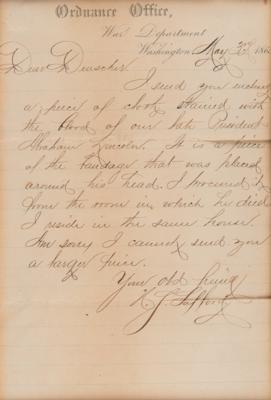 Ordnance Office,
War Department
Washington, May 186
Dear
I send you inclosed
a piece of cloth stained with
the blood of our late President
Abraham Lincoln. It is a piece
of the bandage that was placed
around his head. I procured it
from the room in which he died
I reside in the same house.
Am sorry I cannot send you
a larger piece.
Your old friend
H. S. Safford